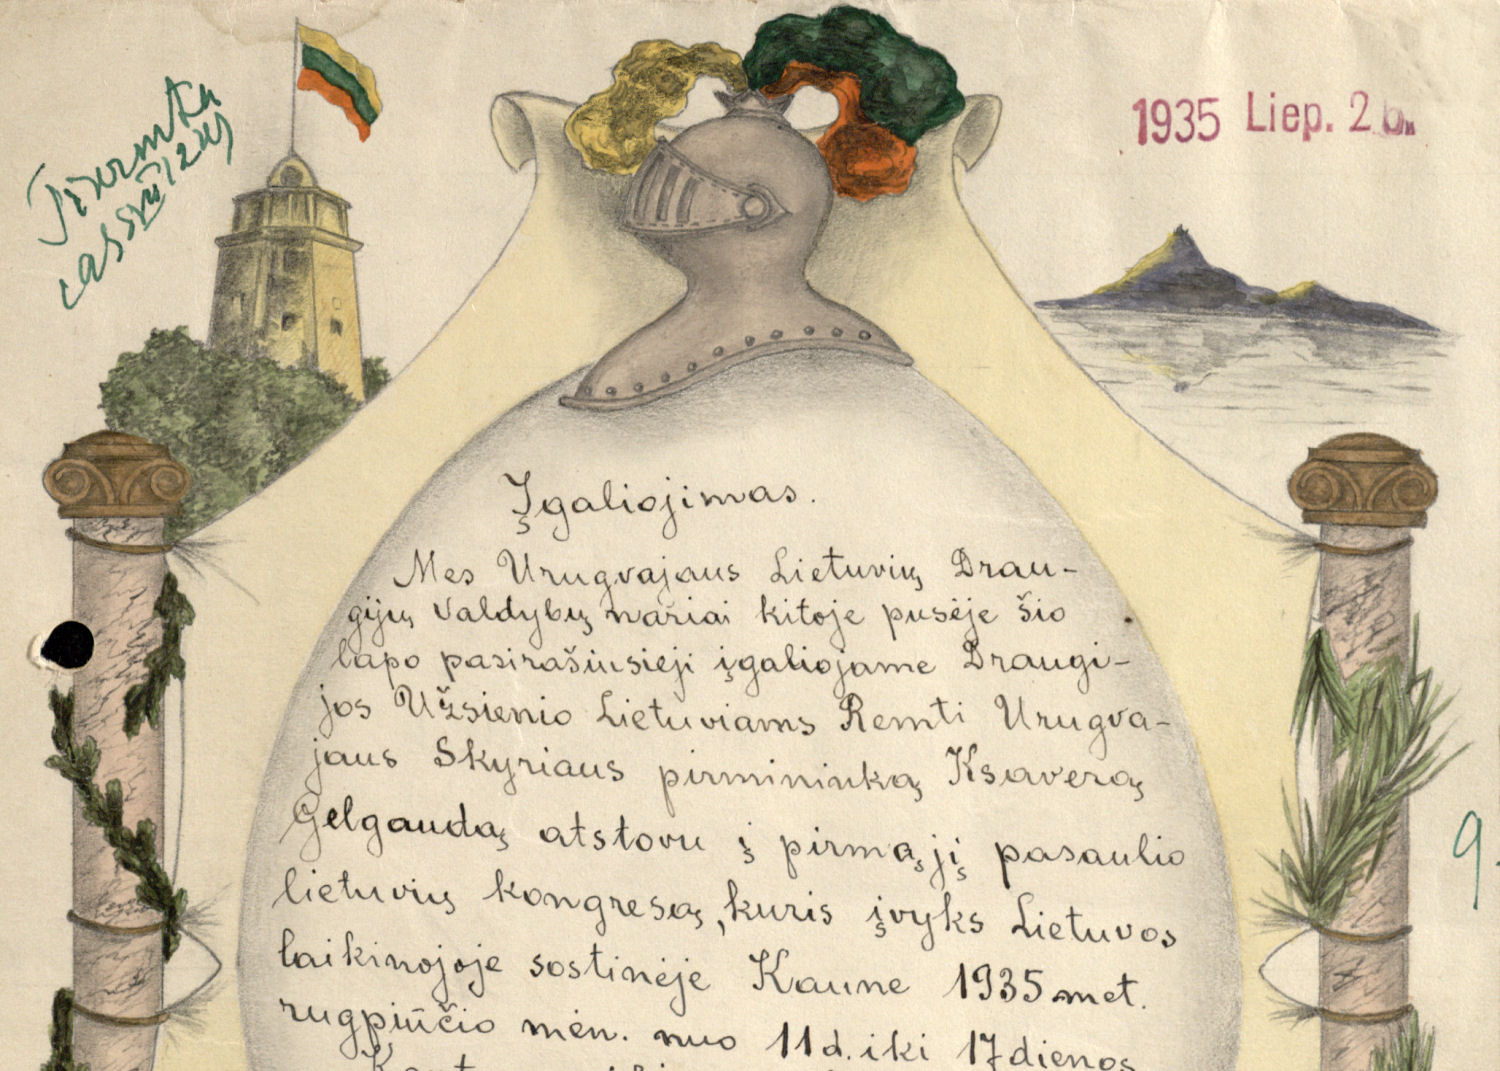 1935 Liep. 2 d.
Įgaliojimas.
Mes Urugvajaus Lietuvių Drau-
gijų valdybų nariai kitoje pusėje šio
lapo pasirašiusieji įgaliojame Draugi-
jos Užsienio Lietuviams Remti Urugva-
jaus Skyriaus pirmininką Ksaverą
Gelgaudą atstovu į pirmąjį pasaulio
lietuvių kongresą, kuris įvyks Lietuvos
laikinojoje sostinėje Kaune 1935 met.
rugpiūčio mėn. nuo 11 d. iki 17 dienos
9.